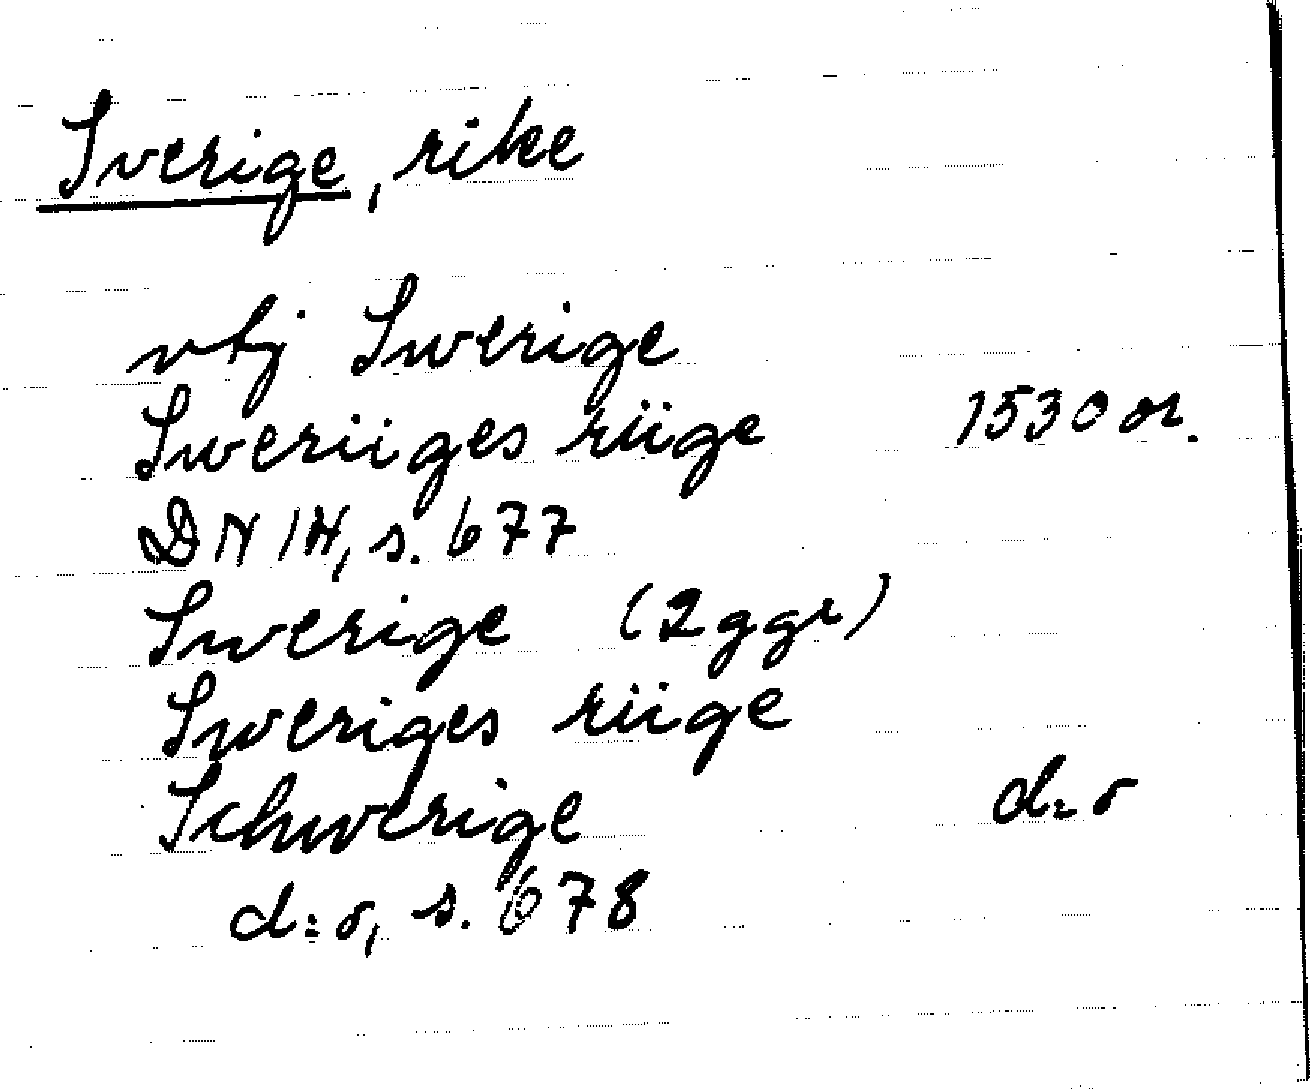 Sverige, rike
vtj Swerige
Sweriiges riige 1530 or.
DN 14, s. 677
Swerige (2 ggr)
Sweriges riige
Schwerige d:o
d:o, s. 678